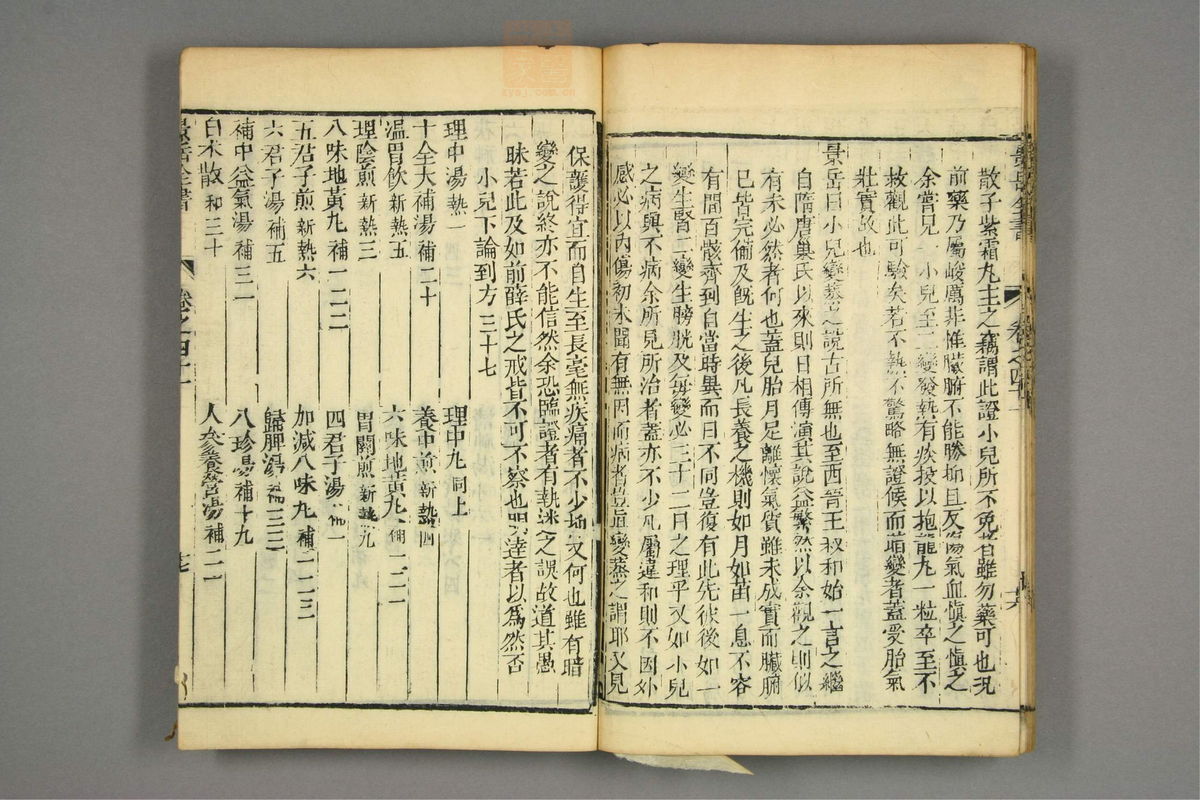 散子紫霜丸主之竊謂此證小兒所不免者雖勿藥可也況
前藥乃屬峻厲非惟臟腑不能勝抑且反傷氣血慎之慎之
余嘗見一小兒至二變發熱有痰投以抱龍丸一粒卒至不
救觀此可驗矣若不熱不驚略無證候而暗變者蓋受胎氣
壯實故也
景岳曰小兒變蒸之說古所無也至西晉王叔和始一言之繼
自隋唐巢氏以來則日相傳演其說益繁然以余觀之則似
有未必然者何也蓋兒胎月足離懷氣質雖未成實而臟腑
已皆完備及既生之後凡長養之機則如月如苗一息不容
有間百骸齊到自當時異而日不同豈復有此先彼後如一
變生腎二變生膀胱及每變必三十二日之理乎又如小兒
之病與不病余所見所治者蓋亦不少凡屬違和則不因外
感必以內傷初未聞有無因而病者豈真變蒸之謂耶又見
保護得宜而自生至長毫無疾痛者不少抑又何也雖有暗
變之說終亦不能信然余恐臨證者有執迷之誤故道其愚
昧若此及如前薛氏之戒皆不可不察也明達者以為然否
小兒下論到方三十七
理中湯熱一
理中丸同上
十全大補湯補二十
養中煎新熱四
溫胃飲新熱五
六味地黃丸補一二一
理陰煎新熱三
胃關煎新熱九
八味地黃丸補一二二
四君子湯補一
五君子煎新熱六
加減八味丸補一二三
六君子湯補五
歸脾湯補三二
補中益氣湯補三一
八珍湯補十九
白朮散和三十
人參養營湯補二一
景岳全書
卷之四十一
zysj.com.cn